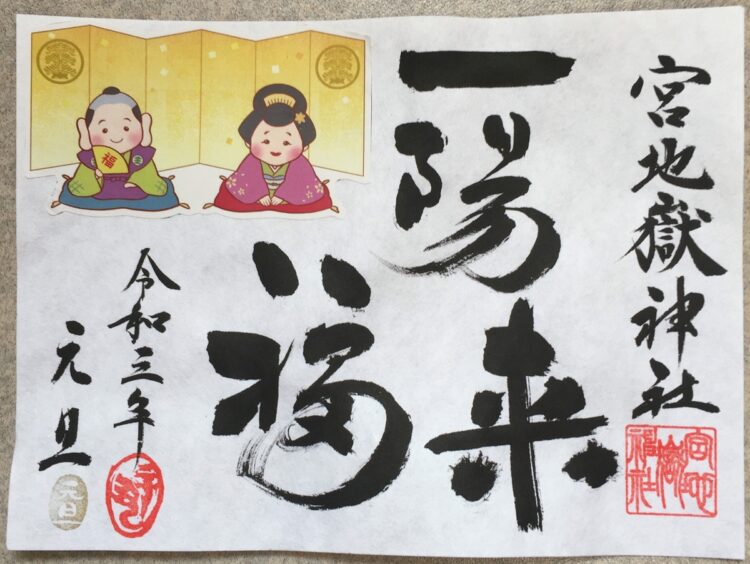 宮地嶽神社
宮地嶽神社
一陽来
福
令和三年
元旦
元旦
福